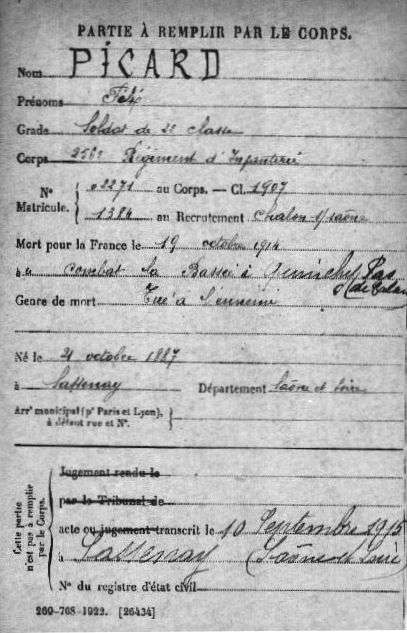 PARTIE À REMPLIR PAR LE CORPS.
Nom PICARD
Prénoms
Grade Soldat de 2e classe
Corps 256e Régiment d'Infanterie
N° Matricule. { 02271 au Corps. — Cl. 1907
1384 au Recrutement Chalon s/ Saône
Mort pour la France le 19 octobre 1914
à combat La Bassée à Pas
de Calais
Genre de mort Tué à l'ennemi
Né le 21 octobre 1887
à Sassenay Département Saône et Loire
Arrt municipal (pr Paris et Lyon),
à défaut rue et N°. }
Cette partie n'est pas à remplir par le Corps.
Jugement rendu le
par le Tribunal de
acte ou jugement transcrit le 10 Septembre 1915
à Sassenay (Saône-et-Loire)
N° du registre d'état civil
260-708-1922. [26434]